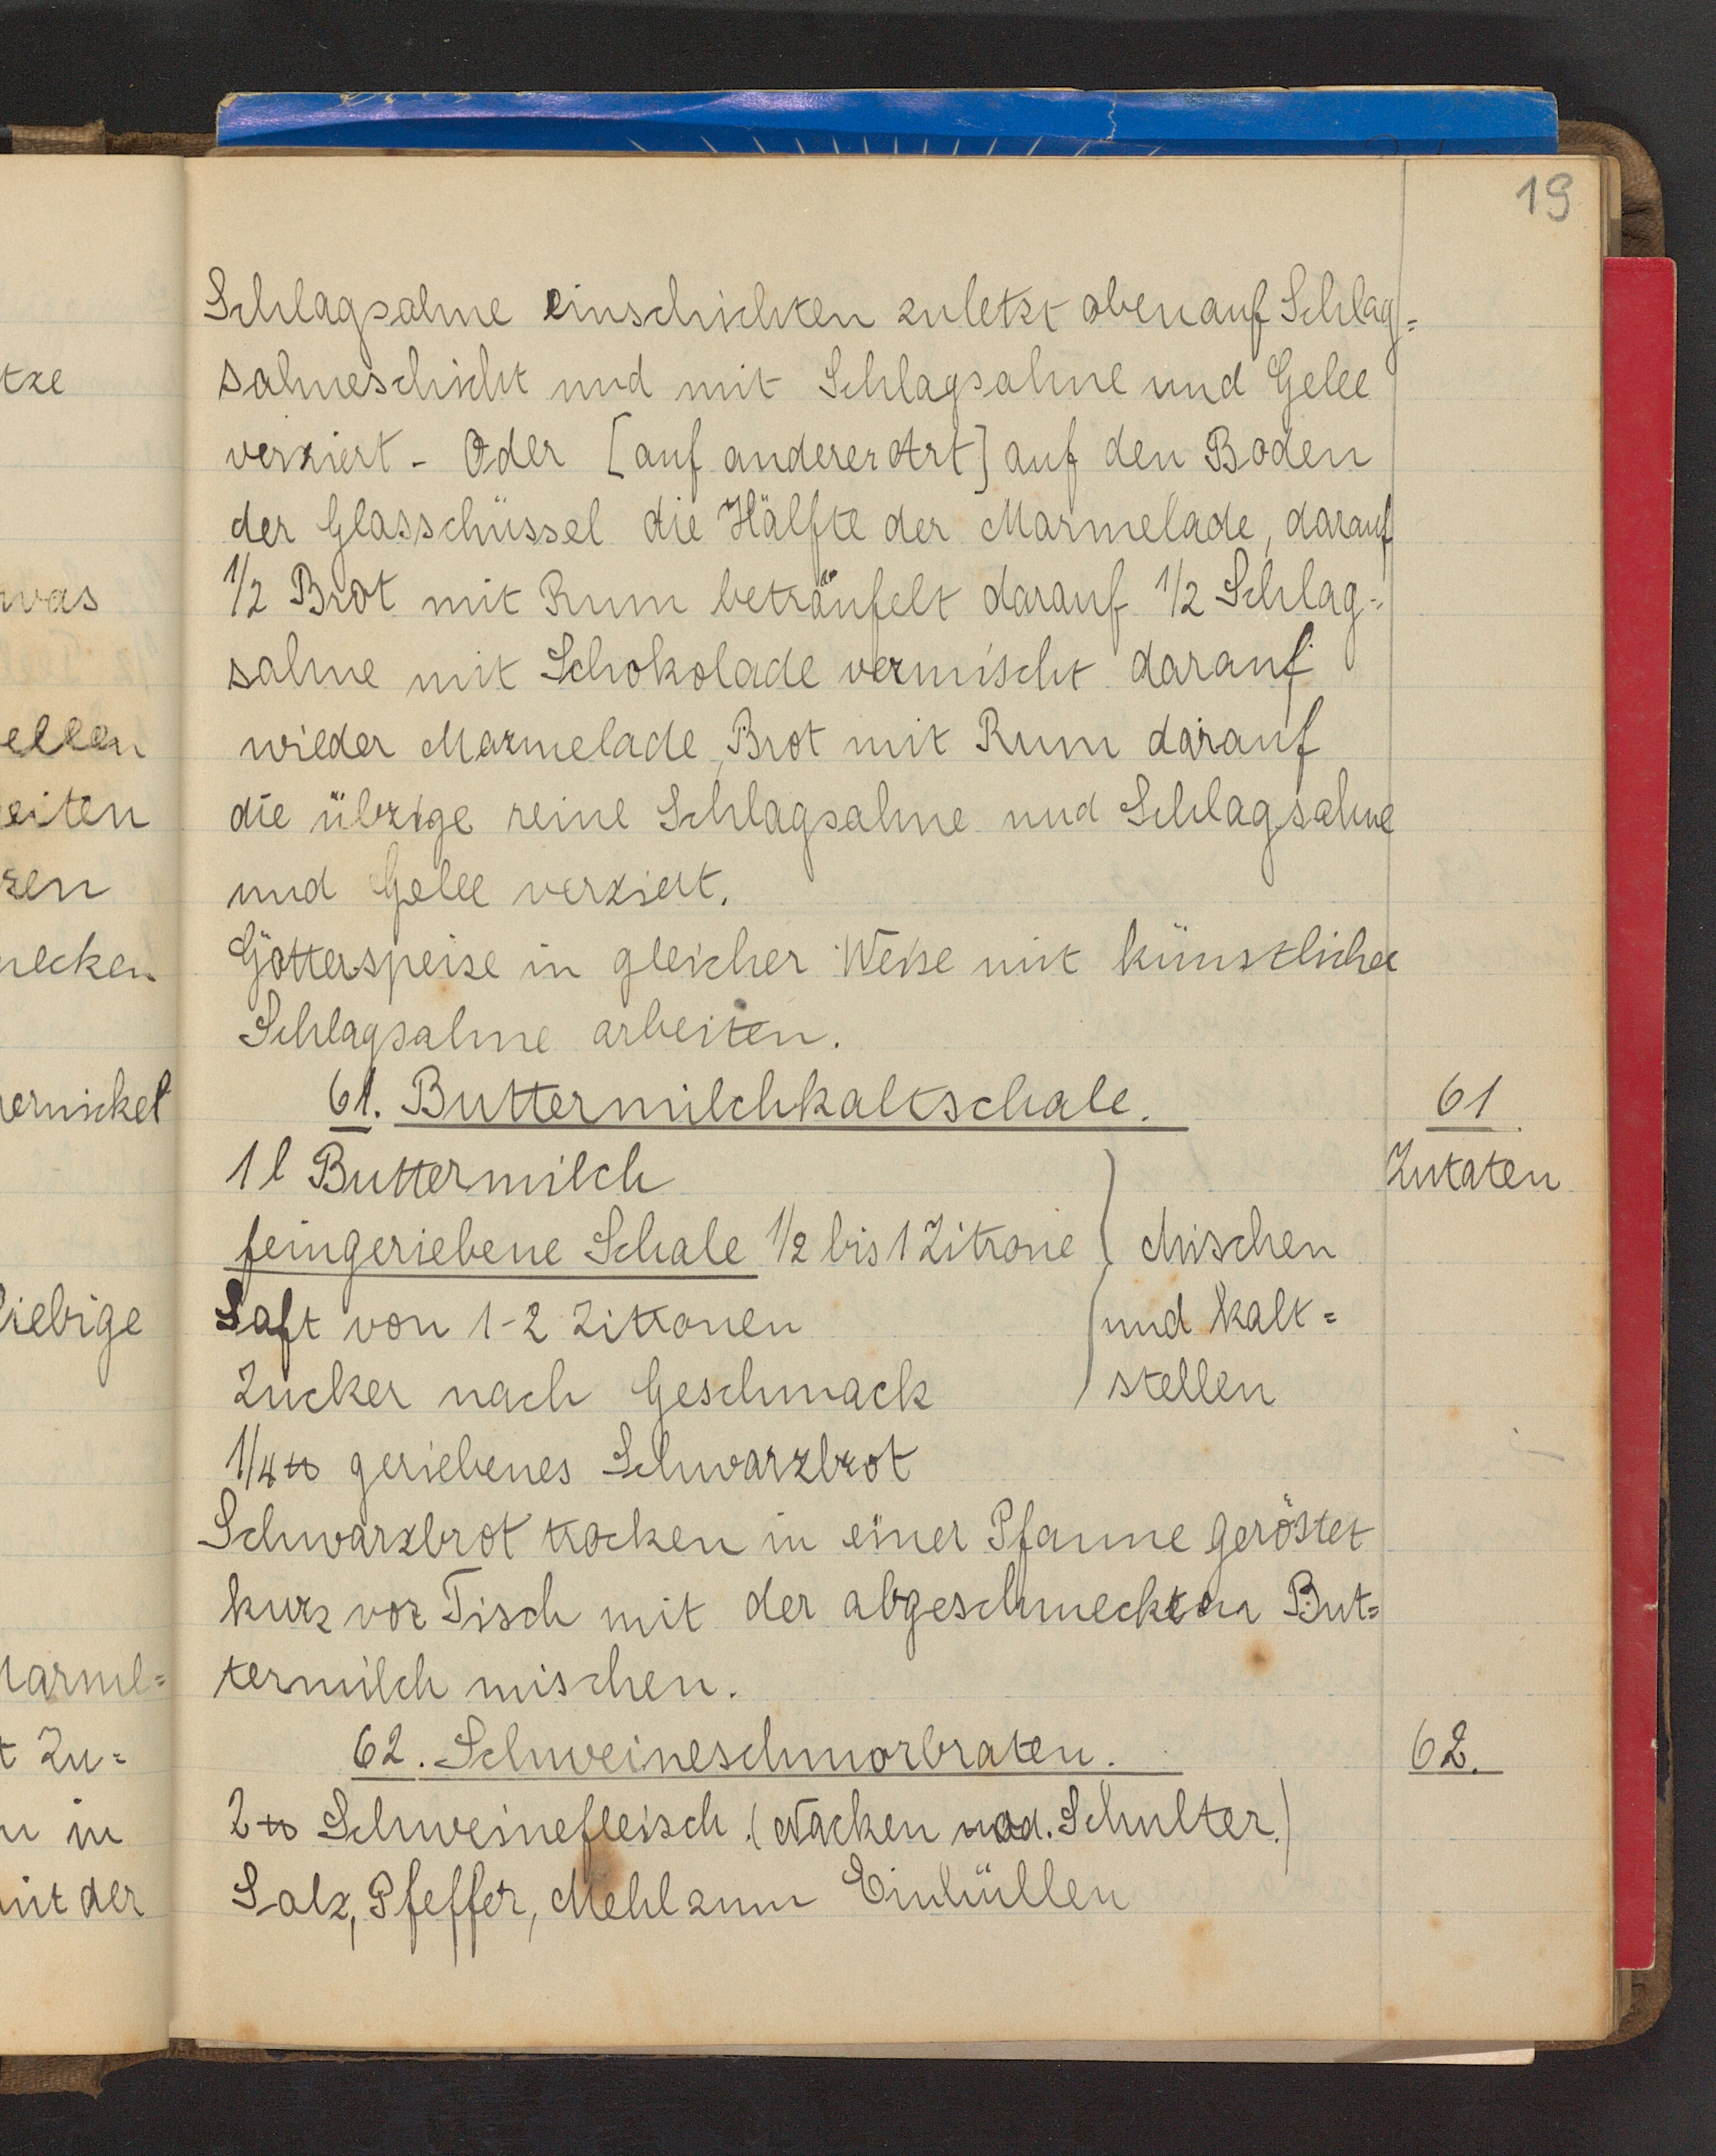 19
Schlagsahne einschichten zuletzt obenauf Schlag=
sahneschicht und mit Schlagsahne und Gelee
verziert - Oder [auf anderer Art] auf den Boden
der Glasschüssel die Hälfte der Marmelade, darauf
1/2 Brot mit Rum beträufelt darauf 1/2 Schlag=
sahne mit Schokolade vermischt darauf
wieder Marmelade, Brot mit Rum darauf
die übrige reine Schlagsahne und Schlagsahne
und Gelee verziert.
Götterspeise in gleicher Weise mit künstlicher
Schlagsahne arbeiten.
61. Buttermilchkaltschale.
61
Zutaten
1 l Buttermilch
feingeriebene Schale 1/2 bis 1 Zitrone
Mischen
Saft von 1-2 Zitronen
und kalt=
Zucker nach Geschmack
stellen
1/4 ℔ geriebenes Schwarzbrot
Schwarzbrot trocken in einer Pfanne geröstet
kurz vor Tisch mit der abgeschmeckten But=
termilch mischen.
62. Schweineschmorbraten.
62.
2 ℔ Schweinefleisch. (Nacken od. Schulter.)
Salz, Pfeffer, Mehl zum Einhüllen
tze
was
ellen
eiten
zen
necken
ernickel
liebige
Marmel=
t Zu=
n in
mit der